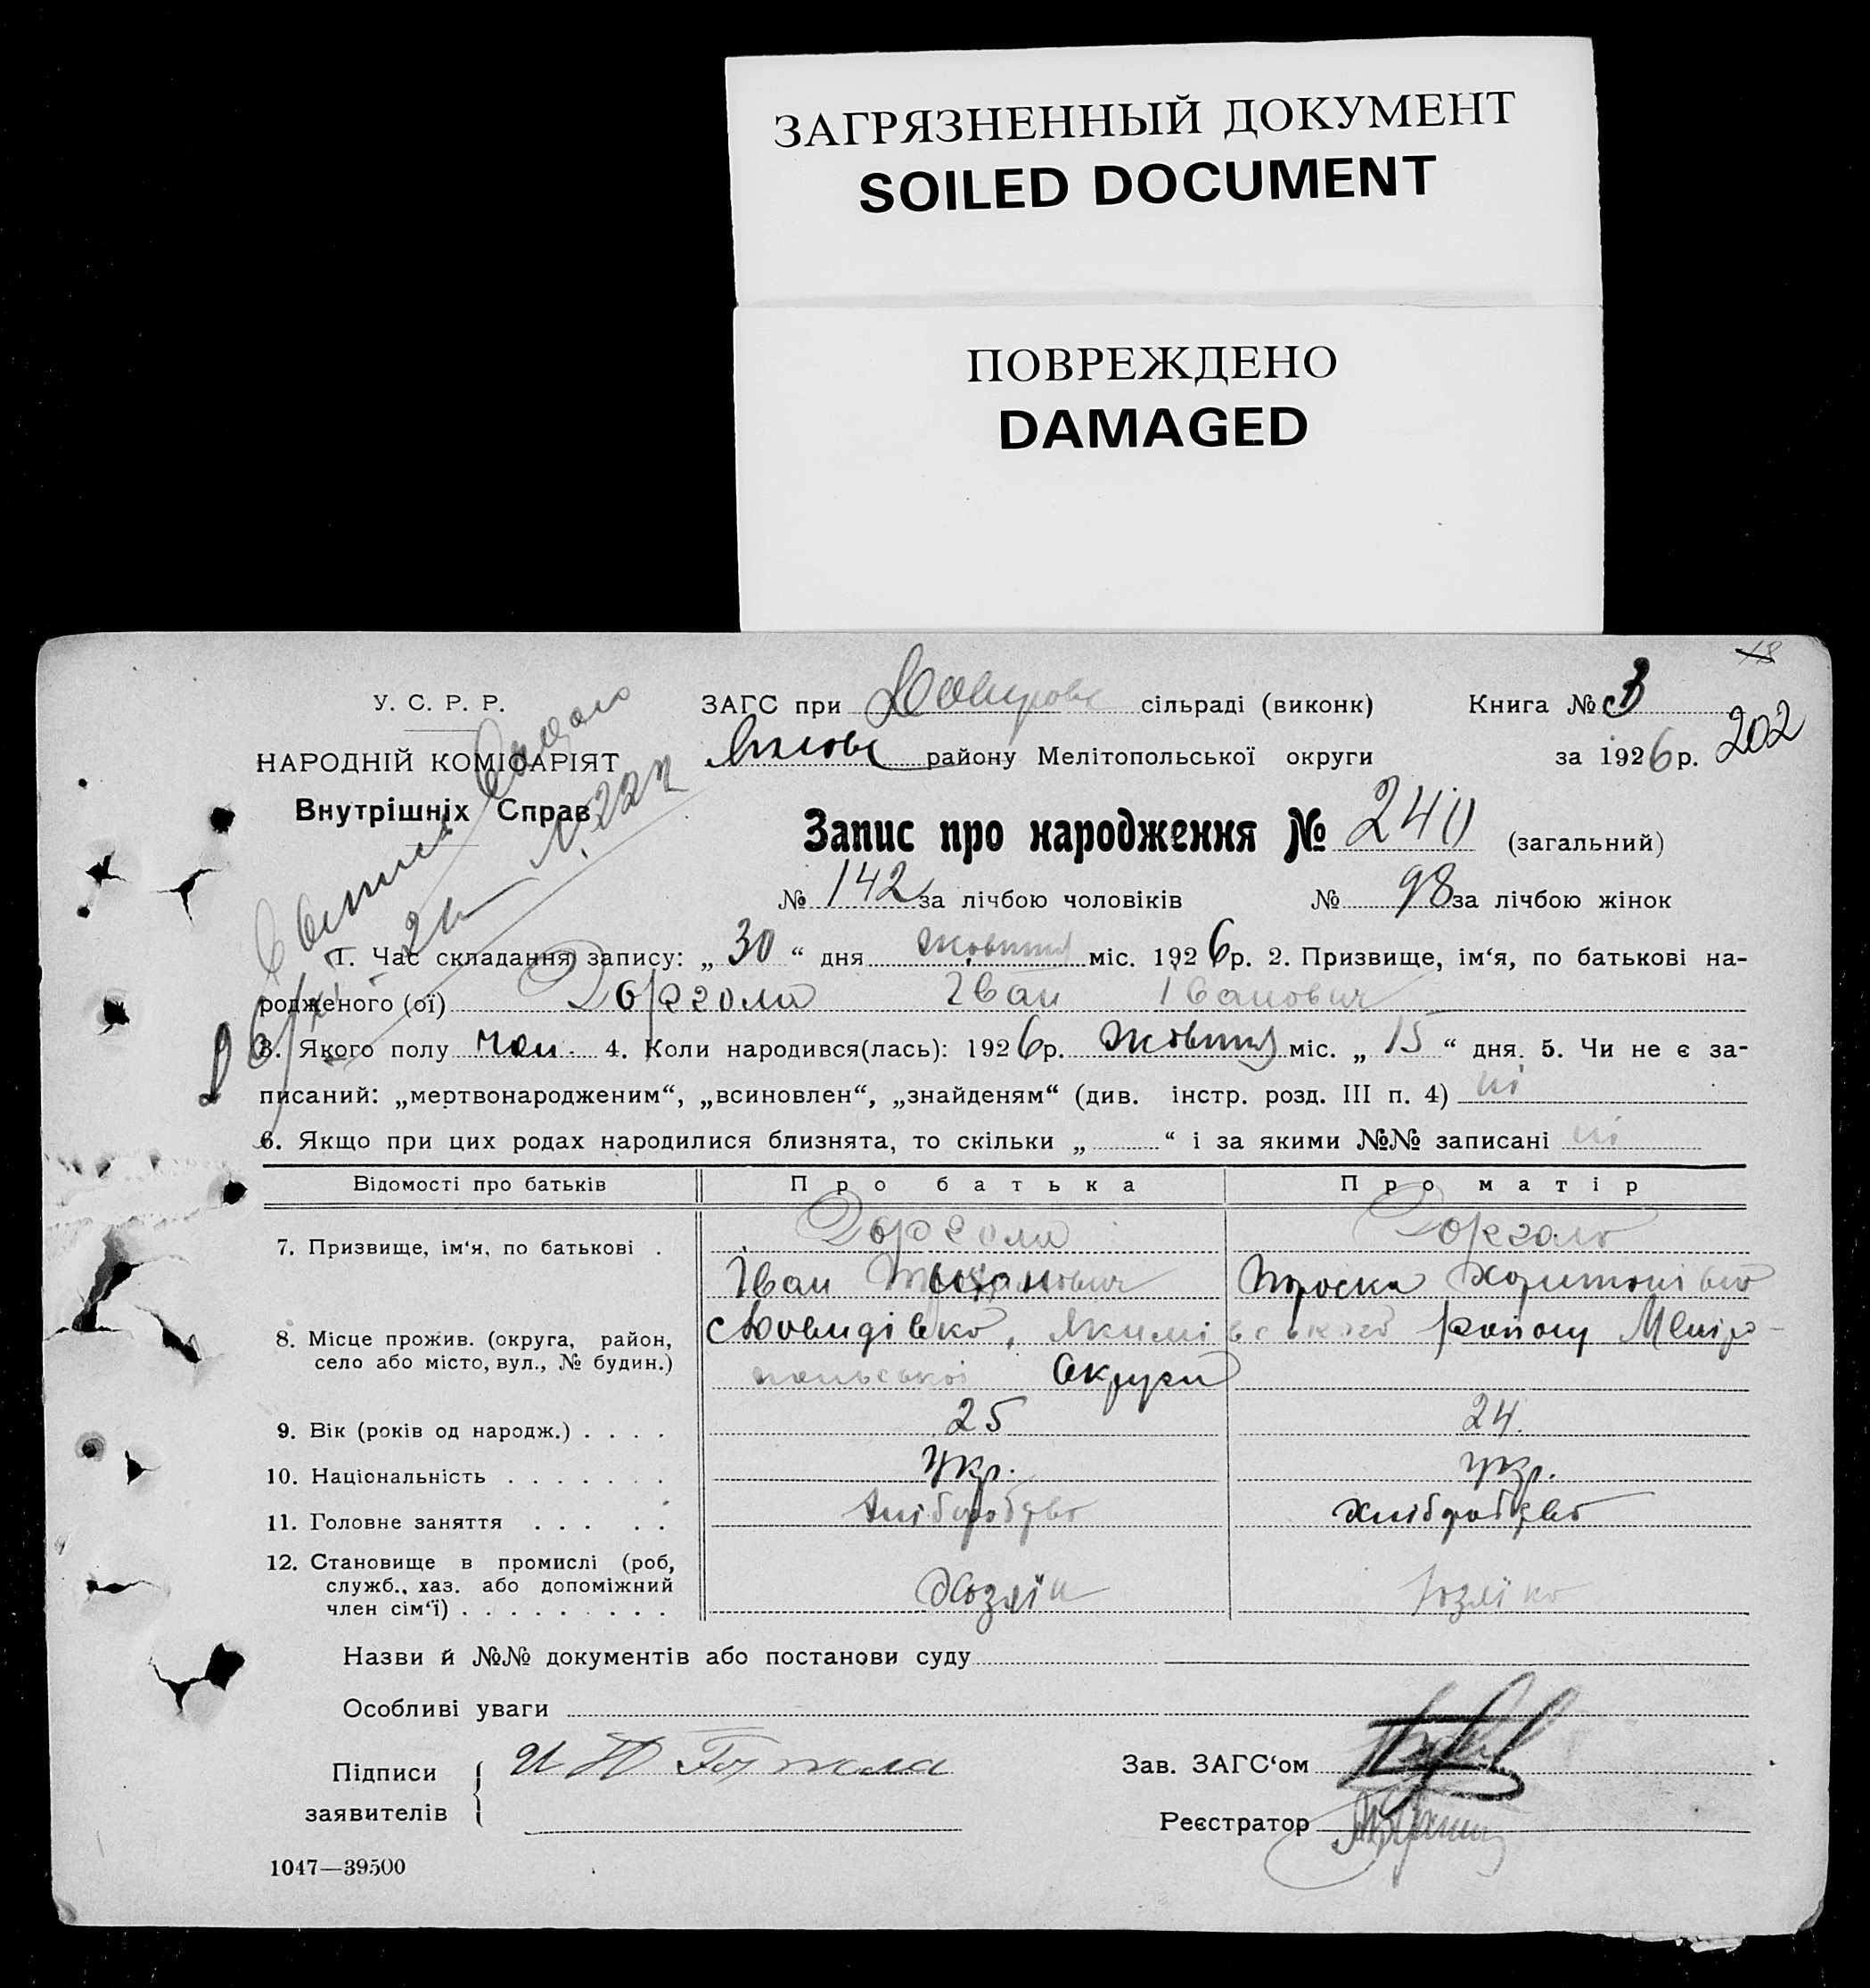 ЗАГРЯЗНЕННЫЙ ДОКУМЕНТ
SOILED DOCUMENT
ПОВРЕЖДЕНО
DAMAGED
18
У. С. Р. Р.
НАРОДНІЙ КОМІСАРІЯТ
Внутрішніх Справ
ЗАГС при сільраді (виконк)
Книга № 3
району Мелітопольської округи
за 1926 р. 202
Запис про народження № 240 (загальний)
№ 142 за лічбою чоловіків № 98 за лічбою жінок
1. Час складання запису: „ 30 “ дня жовтня міс. 1926 р. 2. Призвище, ім‘я, по батькові на-
родженого (ої) Іван Іванович
3. Якого полу чол. 4. Коли народився(лась): 1926 р. жовтня міс. „ 15 “ дня. 5. Чи не є за-
писаний: „мертвонародженим“, „всиновлен“, „знайденям“ (див. інстр. розд. III п. 4) ні
6. Якщо при цих родах народилися близнята, то скільки „ “ і за якими №№ записані ні
Відомості про батьків Про батька Про матір
7. Призвище, ім‘я, по батькові .
Іван Харитонівна
8. Місце прожив. (округа, район, Давидівка, Якимівського району Меліто-
село або місто, вул., № будин.) польської Округи
9. Вік (років од народж.) . . . . 25 24.
10. Національність . . . . . . . укр. укр.
11. Головне заняття . . . . . хліборобство хліборобство
12. Становище в промислі (роб,
служб., хаз. або допоміжний Хозяїн хозяїка
член сім‘ї) . . . . . . . . .
Назви й №№ документів або постанови суду
Особливі уваги
Підписи
заявителів
Зав. ЗАГС‘ом
Реєстратор
1047—39500